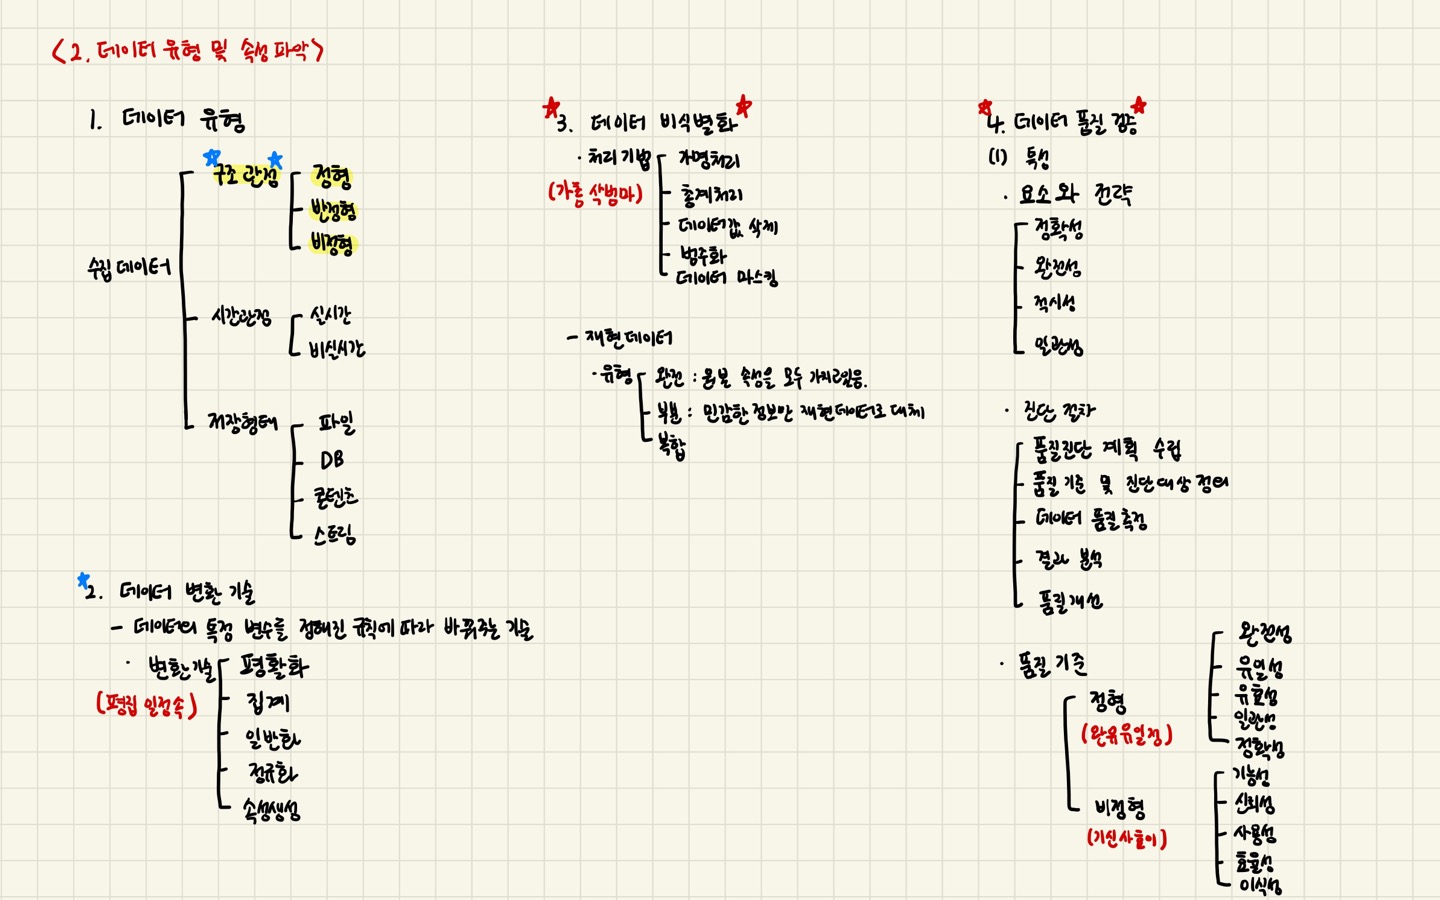 <2. 데이터 유형 및 속성 파악>
1. 데이터 유형
수집 데이터
구조 관점
정형
반정형
비정형
시간관점
실시간
비실시간
저장형태
파일
DB
콘텐츠
스트림
2. 데이터 변환 기술
- 데이터의 특정 변수를 정해진 규칙에 따라 바꿔주는 기술
· 변환 기술
(평집 일정속)
평활화
집계
일반화
정규화
속성생성
3. 데이터 비식별화
· 처리 기법
(가총 삭범마)
가명처리
총계처리
데이터값 삭제
범주화
데이터 마스킹
- 재현 데이터
· 유형
완전 : 원본 속성을 모두 가지고있음.
부분 : 민감한 정보만 재현데이터로 대체
복합
4. 데이터 품질 검증
(1) 특성
· 요소와 전략
정확성
완전성
적시성
일관성
· 진단 절차
품질진단 계획 수립
품질 기준 및 진단대상 정의
데이터 품질측정
결과 분석
품질개선
· 품질 기준
정형
(완유유일정)
완전성
유일성
유효성
일관성
정확성
비정형
(기신사효이)
기능성
신뢰성
사용성
효율성
이식성